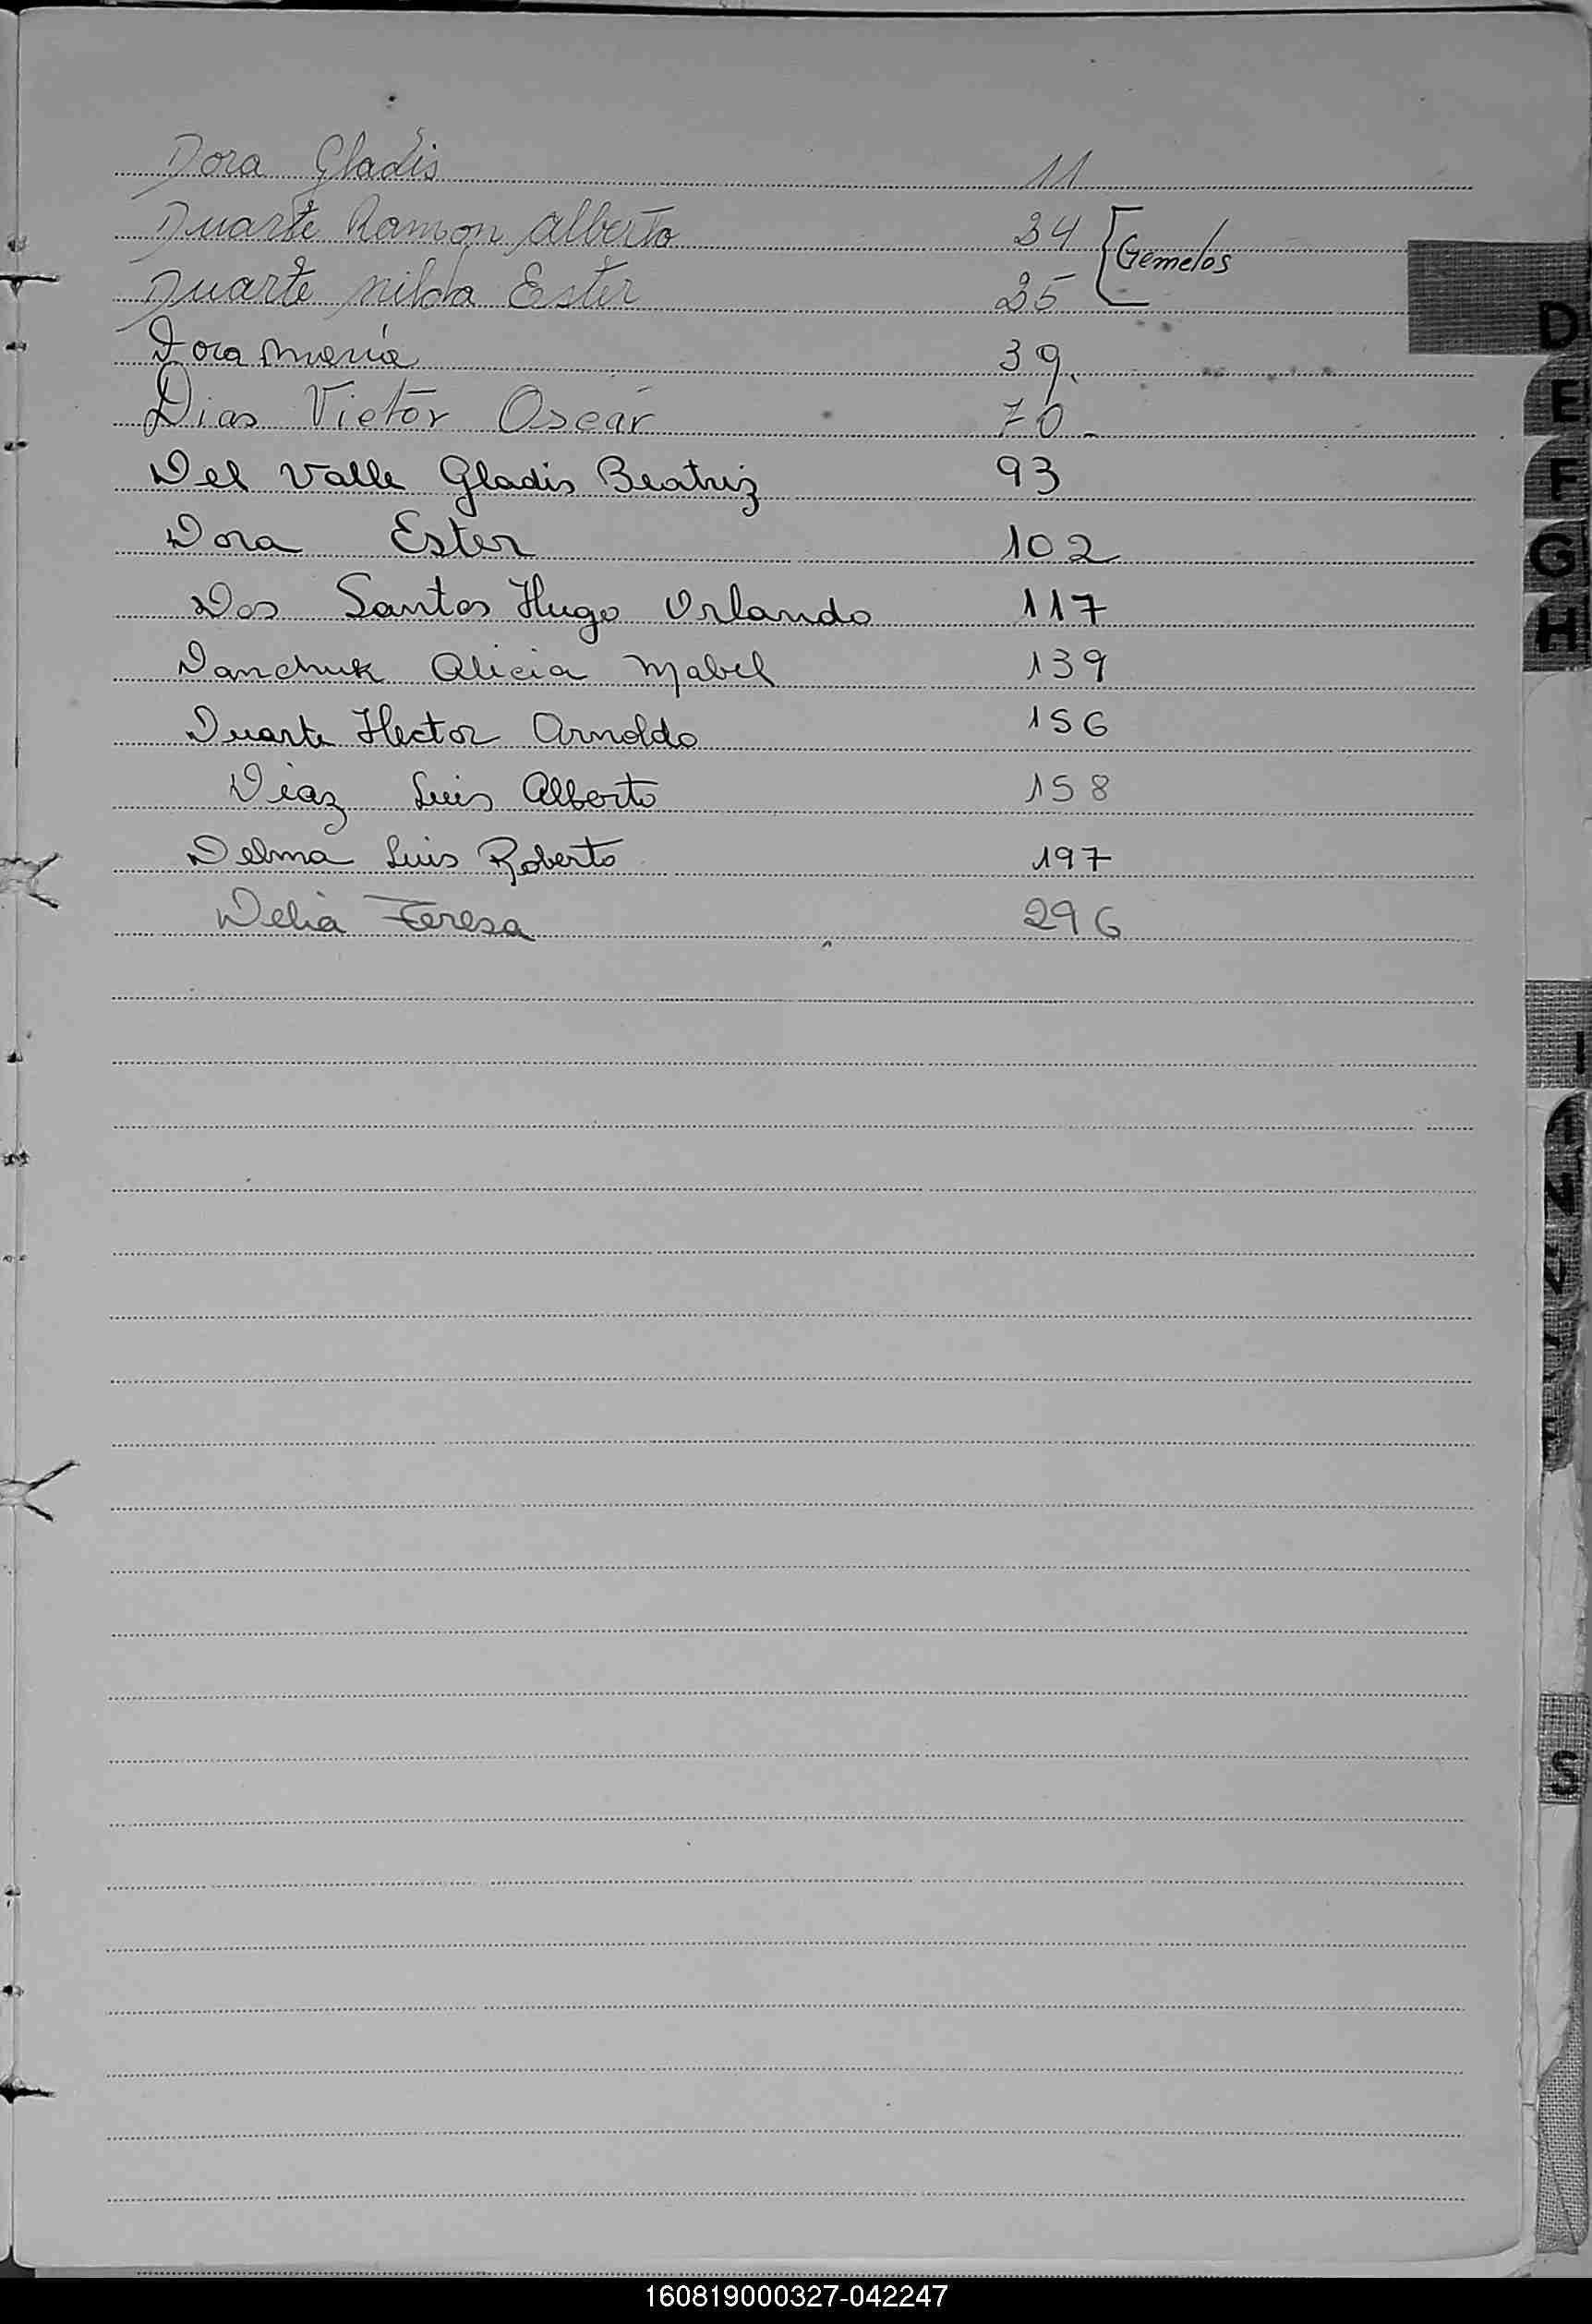 Dora Gladis 11
Duarte Ramon Alberto 34 [Gemelos
Duarte Nilda Ester 35
Dora Maria 39.
Dias Victor Oscar 70-
Del Valle Gladis Beatriz 93
Dora Ester 102
Dos Santos Hugo Orlando 117
Danchuk Alicia Mabel 139
Duarte Hector Arnoldo 156
Diaz Luis Alberto 158
Delma Luis Roberto 197
Delia Teresa 296
D
E
F
G
H
I
S
160819000327-042247